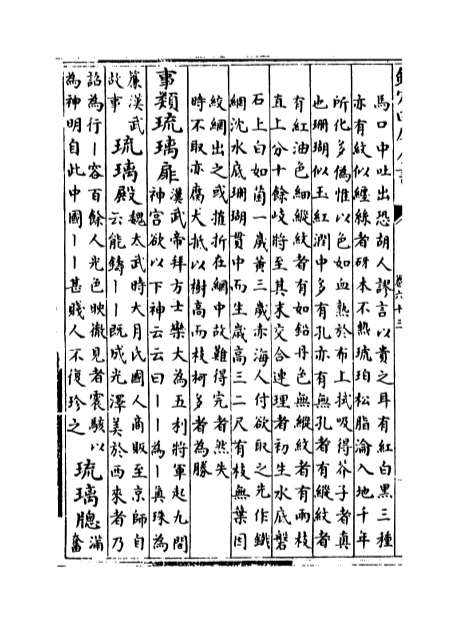 馬口中吐出恐胡人謬言以貴之耳有紅白黑三種
亦有紋似纏絲者研木不熱琥珀松脂淪入地千年
所化多偽惟以色如血熱於布上拭吸得芥子者真
也珊瑚似玉紅潤中多有孔亦有無孔者有縱紋者
有紅油色細縱紋者有如鉛丹色無縱紋者有兩枝
直上分十餘岐將至其末交合連理者初生水底磐
石上白如菌一歲黃三歲赤海人付欲取之先作鐵
網沈水底珊瑚貫中而生歲高三二尺有枝無葉因
絞網出之或摧折在網中故難得完者然失
時不取亦腐大抵以樹高而枝柯多者為勝
事類琉璃扉漢武帝拜方士欒大為五利將軍起九間神宫欲以下神云云曰〡〡為〡與珠為
簾漢武故事 琉璃殿魏太武時大月氏國人商販至京師自云能鑄〡〡既成光澤美於西來者乃
詔為行〡容百餘人光色映徹見者震駭以為神明自此中國〡〡甚賤人不復珍之 琉璃牎滿奮
卷六十三